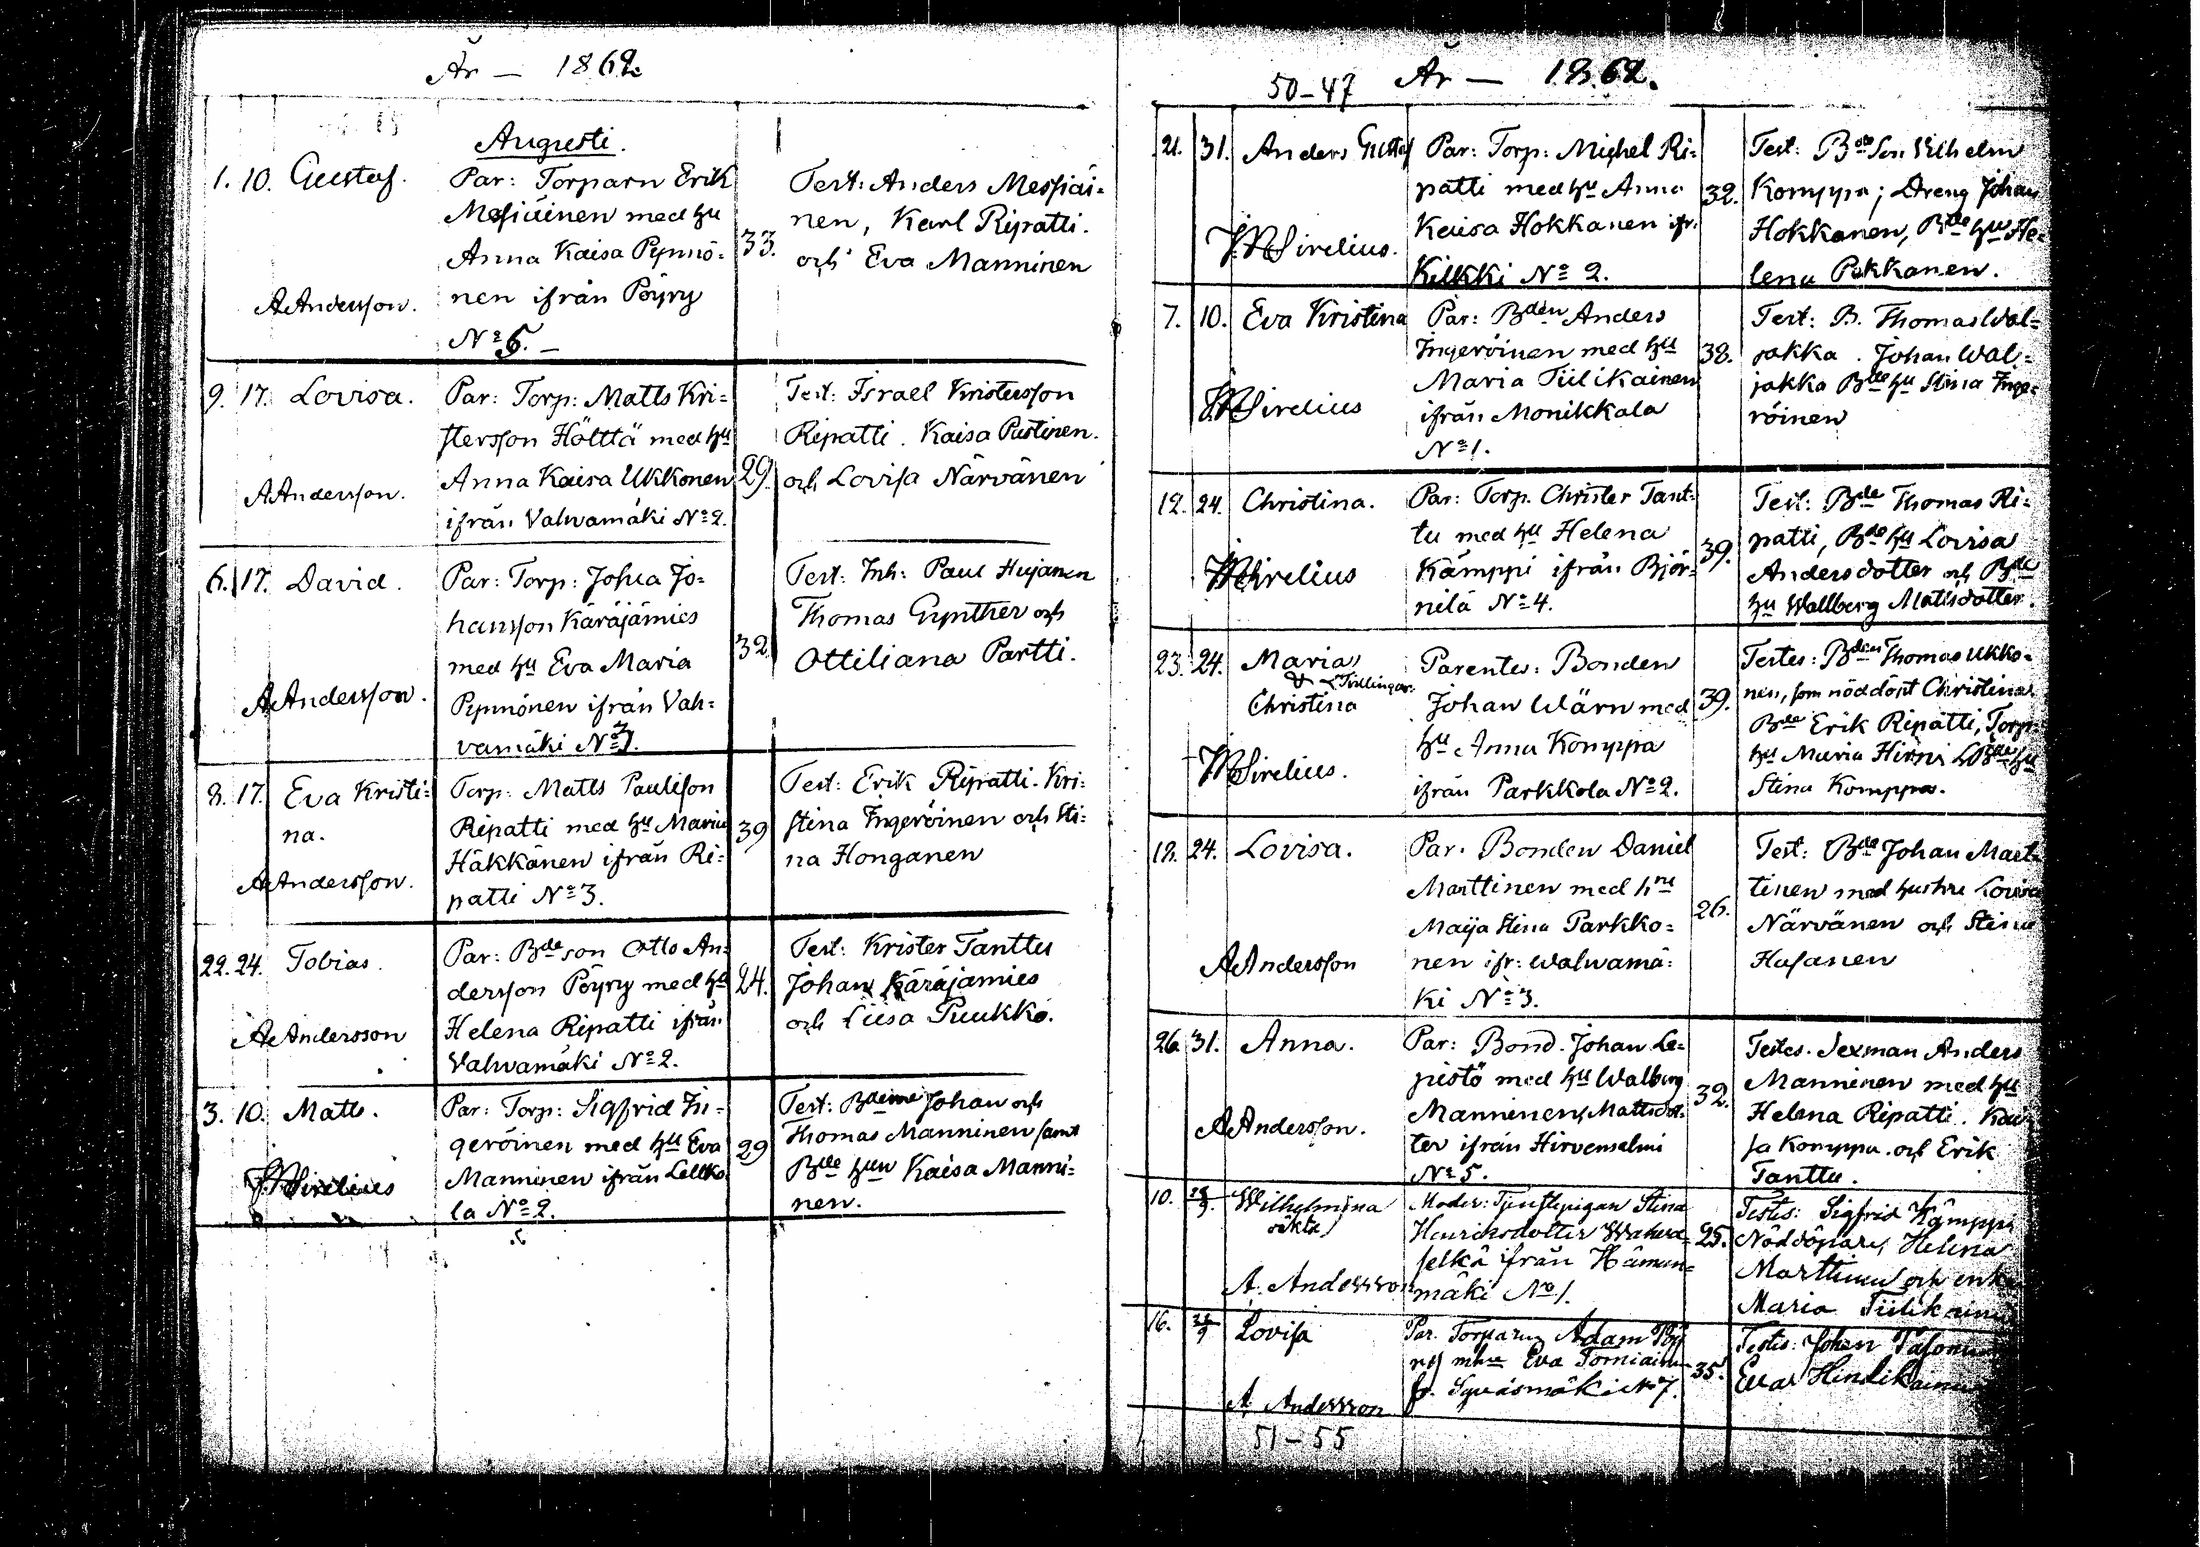 År — 1862.
Augusti.
1. 10. Gustaf.
A Andersson.
Par: Torparn Erik
Messiäinen med hu
Anna Kaisa Pynnö=
nen ifrån Pöyry
№ 6. —
33.
Test: Anders Messiäi=
nen, Karl Ripatti.
och Eva Manninen
9. 17. Lovisa.
A Andersson.
Par: Torp: Matts Kri=
stersson Hölttä med hu
Anna Kaisa Ukkonen
ifrån Vahvamäki № 2.
29.
Test: Israel Kristersson
Ripatti. Kaisa Pustinen.
och Lovisa Närvänen
6. 17. David.
A Andersson.
Par: Torp: Josua Jo=
hansson Käräjämies
med hu Eva Maria
Pynnönen ifrån Vah=
vamäki № 7.
32.
Test: Inh: Paul Hujanen
Thomas Gynther och
Ottiliana Partti.
8. 17. Eva Kristi=
na.
A Andersson.
Torp: Matts Paulsson
Ripatti med hu Maria
Häkkänen ifrån Ri=
patti № 3.
39
Test: Erik Ripatti. Kri=
stina Ingeröinen och Sti=
na Honganen
22. 24. Tobias.
A Andersson
Par: Bde son Otto An=
dersson Pöyry med hu
Helena Ripatti ifrån
Vahvamäki № 2.
24.
Test: Krister Tanttu
Johan Käräjämies
och Liisa Puukko.
3. 10. Matts.
Sirelius
Par: Torp: Sigfrid In=
geröinen med hu Eva
Manninen ifrån Lellko
la № 2.
29
Test: Johan och
Thomas Manninen samt
Bde hun Kaisa Manni=
nen.
50-47 År — 1862.
21. 31. Anders Gustaf
Sirelius.
Par: Torp: Michel Ri=
patti med hu Anna
Kaisa Hokkanen ifr.
Kilkki № 2.
32.
Test: Bde Son Vilhelm
Komppa; Dreng Johan
Hokkanen, Bde hu He=
lena Pakkanen.
7. 10. Eva Kristina
Sirelius
Par: Bden Anders
Ingeröinen med hu
Maria Tiilikainen
ifrån Monikkala
№ 1.
38.
Test: B. Thomas Wal=
jakka. Johan Wal=
jakka Bde hu Stina Inge=
röinen
12. 24. Christina.
Sirelius
Par: Torp. Christer Tant=
tu med hu Helena
Kämppi ifrån Björ=
nilä № 4.
39.
Test: Bde Thomas Ri=
patti, Bde hu Lovisa
Andersdotter och Bde
hu Wallberg Mattsdotter.
23. 24. Maria
& Tvillingar.
Christina
Sirelius.
Parentes: Bonden
Johan Wärn med
hu Anna Komppa
ifrån Parkkola № 2.
39.
Testes: Bden Thomas Ukko=
nen, som nöddöpt Christina
Bde Erik Ripatti, Torp:
hu Maria Hirni & Bde hu
Stina Komppa.
18. 24. Lovisa.
A Andersson
Par. Bonden Daniel
Marttinen med hru
Maija Stina Parkko=
nen ifr: Walwamä=
ki № 3.
26.
Test: Bde Johan Mart=
tinen med hustru Lovisa
Närvänen och Stina
Hasanen
26. 31. Anna.
A Andersson.
Par: Bond. Johan Le=
pistö med hu Walborg
Manninen, Mattsdot=
ter ifrån Hirvenselmi
№ 5.
32.
Testes. Sexman Anders
Manninen med hu
Helena Ripatti. Kai
sa Komppa och Erik
Tanttu.
10. Wilhelmina
oäkta
A. Andersson
Moder: Tjenstepigan Stina
Henricsdotter Wahva=
selkä ifrån Hämen=
mäki № 1.
25.
Testes: Sigfrid Kämppi
Nöddöpare, Helena
Marttinen och enka
Maria Tiilikainen
16. Lovisa
A. Andersson
Par. Torparn Adam Pöy
ry mhu Eva Torniainen
fr. № 7.
35.
Testes: Johan
Eva Hindikainen
51-55